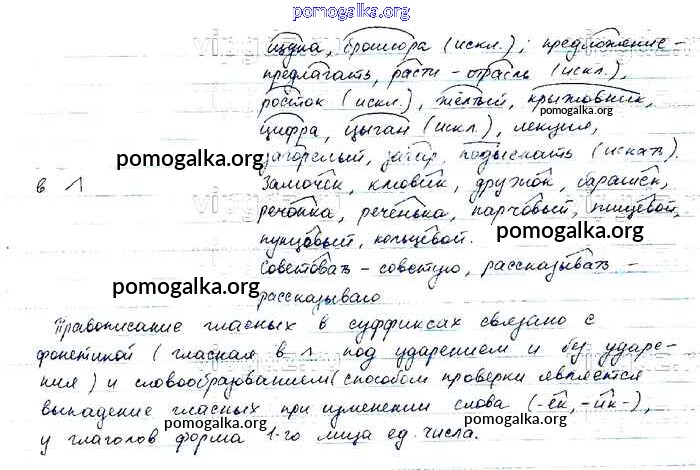 pomogalka.org
щука, брошюра (искл.); предложение -
предлагать, расти - отрасль (искл.),
росток (искл.), жёлтый, крыжовник,
pomogalka.org
цифра, цыган (искл.), лекция,
загорелый, загар, подыскать (искать).
pomogalka.org
в ⌃ Замочек, ключик, дружок, барашек,
речонка, реченька, парчовый, пищевой,
пунцовый, кольцевой.
pomogalka.org
Советовать - советую, рассказывать -
рассказываю
pomogalka.org
Правописание гласных в суффиксах связано с
фонетикой (гласная в ⌃ под ударением и без ударе-
ния) и словообразованием (способом проверки является
выпадение гласных при изменении слова (-ек, -ик-),
pomogalka.org
pomogalka.org
у глаголов форма 1-го лица ед. числа.